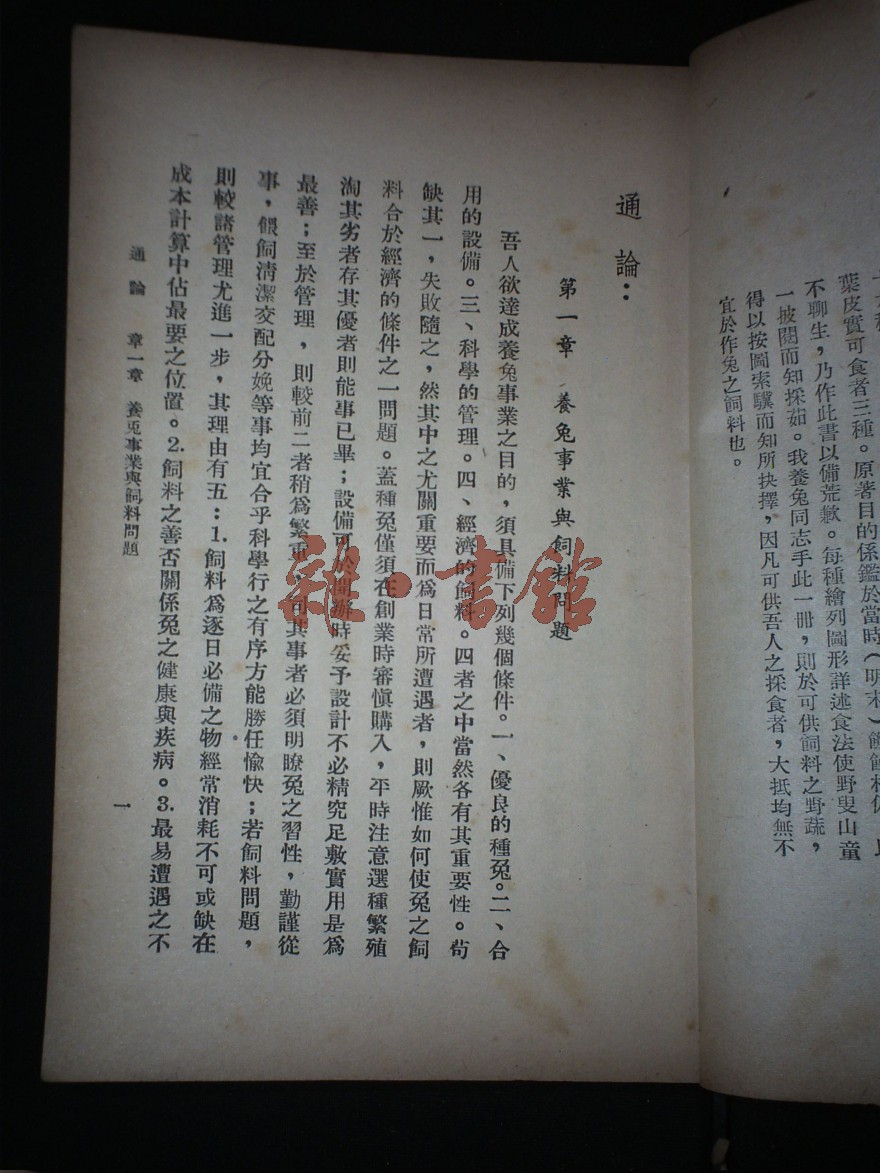 葉皮實可食者三種。原著目的係鑑於當時(明末)饑饉相仍,民
不聊生,乃作此書以備荒歉。每種繪列圖形詳述食法使野叟山童
一披閱而知採茹。我養兔同志手此一冊,則於可供飼料之野蔬,
得以按圖索驥而知所抉擇,因凡可供吾人之採食者,大抵均無不
宜於作兔之飼料也。
通論:
第一章 養兔事業與飼料問題
吾人欲達成養兔事業之目的,須具備下列幾個條件。一、優良的種兔。二、合
用的設備。三、科學的管理。四、經濟的飼料。四者之中當然各有其重要性。茍
缺其一,失敗隨之,然其中之尤關重要而爲日常所遭遇者,則厥惟如何使兔之飼
料合於經濟的條件之一問題。蓋種兔僅須在創業時審愼購入,平時注意選種繁殖
淘其劣者存其優者則能事已畢;設備可於開辦時妥予設計不必精究足敷實用是爲
最善;至於管理,則較前二者稍爲繁重,司其事者必須明瞭兔之習性,勤謹從
事,餵飼淸潔交配分娩等事均宜合乎科學行之有序方能勝任愉快;若飼料問題,
則較諸管理尤進一步,其理由有五:1.飼料爲逐日必備之物經常消耗不可或缺在
成本計算中佔最要之位置。2.飼料之善否關係兔之健康與疾病。3.最易遭遇之不
通論 章一章 養兎事業與飼料問題
一
雜·書館